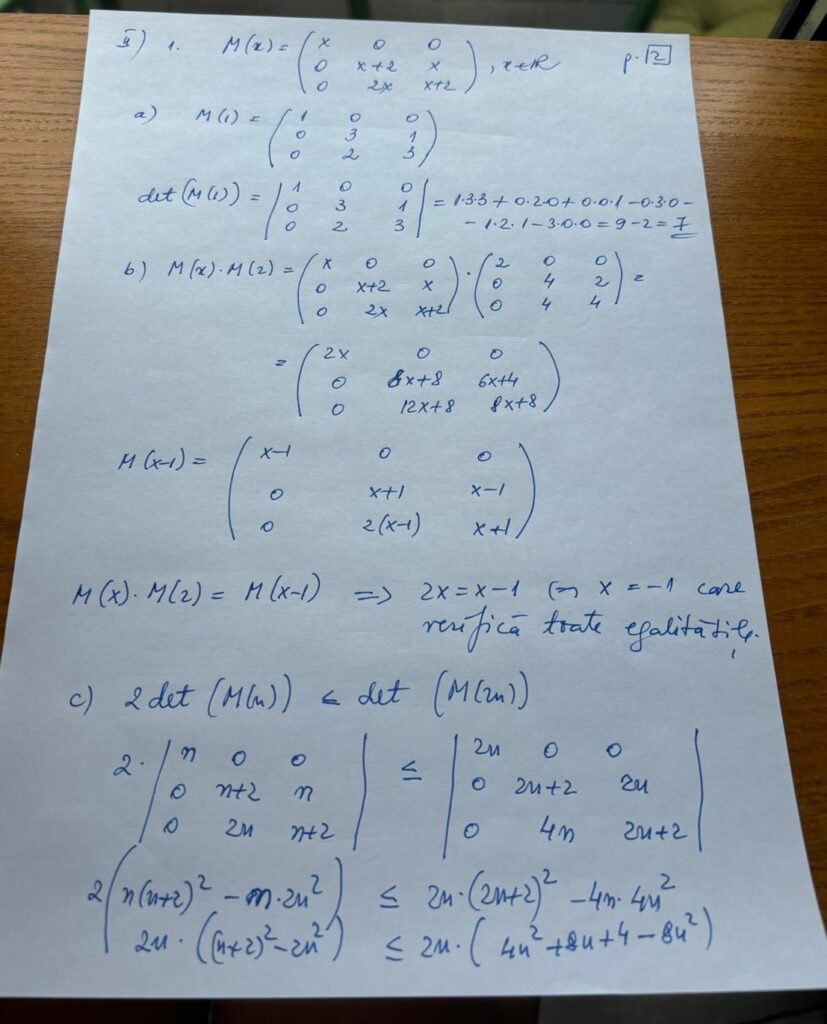 II) 1. M(x) = ( x 0 0 p. 2
0 x+2 x
0 2x x+2 ) , x∈R
a) M(1) = ( 1 0 0
0 3 1
0 2 3 )
det(M(1)) = | 1 0 0
0 3 1
0 2 3 | = 1·3·3 + 0·2·0 + 0·0·1 - 0·3·0 -
- 1·2·1 - 3·0·0 = 9 - 2 = 7
b) M(x)·M(2) = ( x 0 0
0 x+2 x
0 2x x+2 ) · ( 2 0 0
0 4 2
0 4 4 ) =
= ( 2x 0 0
0 8x+8 6x+4
0 12x+8 8x+8 )
M(x-1) = ( x-1 0 0
0 x+1 x-1
0 2(x-1) x+1 )
M(x)·M(2) = M(x-1) => 2x = x-1 <=> x = -1 care
verifică toate egalitățile.
c) 2 det (M(n)) ≤ det (M(2n))
2· | n 0 0
0 n+2 n
0 2n n+2 | ≤ | 2n 0 0
0 2n+2 2n
0 4n 2n+2 |
2( n(n+2)² - n·2n² ) ≤ 2n·(2n+2)² - 4n·4n²
2n·((n+2)² - 2n²) ≤ 2n·( 4n² + 8n + 4 - 8n²)